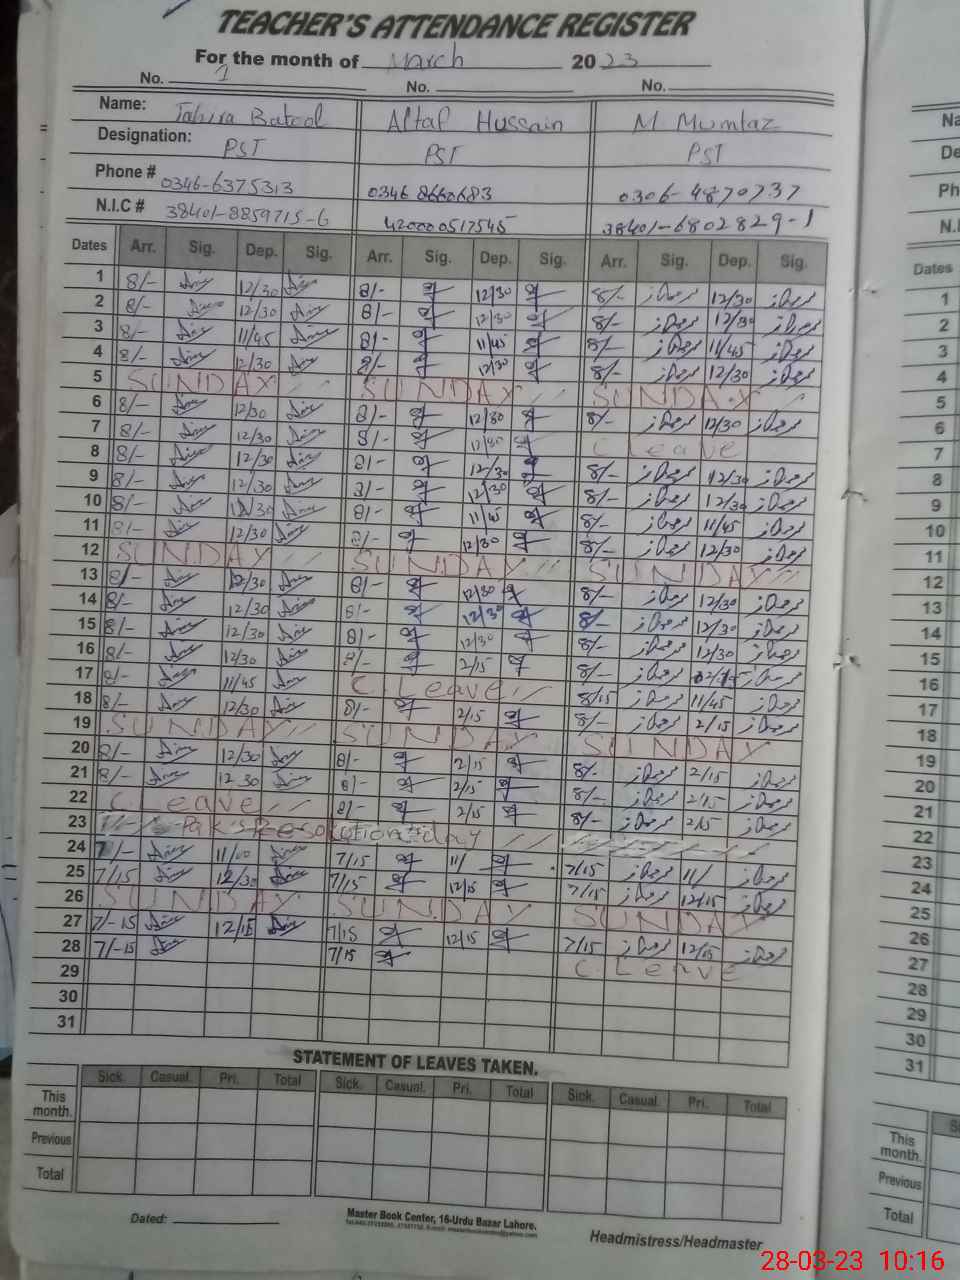 TEACHER'S ATTENDANCE REGISTER
For the month of March 2023
No. 1 No. No.
Name: Tahira Batool Altaf Hussain M Mumtaz
Designation: PST PST PST
Phone # 0346-6375313 0346 8660683 0306-4870737
N.I.C # 38401-8859715-6 420000517545 38401-6802829-1
Dates Arr. Sig. Dep. Sig. Arr. Sig. Dep. Sig. Arr. Sig. Dep. Sig.
1 8/- 12/30 8/- 12/30 8/- 12/30
2 8/- 12/30 8/- 12/30 8/- 12/30
3 8/- 11/45 8/- 11/45 8/- 11/45
4 8/- 12/30 8/- 12/30 8/- 12/30
5 SUNDAY SUNDAY SUNDAY
6 8/- 12/30 8/- 12/30 8/- 12/30
7 8/- 12/30 8/- 12/30 C Leave
8 8/- 12/30 8/- 12/30 8/- 12/30
9 8/- 12/30 8/- 12/30 8/- 12/30
10 8/- 8/- 11/45 8/- 11/45
11 8/- 12/30 8/- 12/30 8/- 12/30
12 SUNDAY SUNDAY SUNDAY
13 8/- 12/30 8/- 12/30 8/- 12/30
14 8/- 12/30 8/- 12/30 8/- 12/30
15 8/- 12/30 8/- 12/30 8/- 12/30
16 8/- 12/30 8/- 2/15 8/-
17 8/- 11/45 C. Leave 8/15 11/45
18 8/- 12/30 8/- 2/15 8/- 2/15
19 SUNDAY SUNDAY SUNDAY
20 8/- 12/30 8/- 2/15 8/- 2/15
21 8/- 12 30 8/- 2/15 8/- 2/15
22 C. Leave 8/- 2/15 8/- 2/15
23 Pak's Resolution day
24 7/- 11/00 7/15 11/ 7/15 11/
25 7/15 12/30 7/15 12/15 7/15 12/15
26 SUNDAY SUNDAY SUNDAY
27 7/-15 12/15 7/15 12/15 7/15 12/15
28 7/-15 7/15 C. Leave
29
30
31
STATEMENT OF LEAVES TAKEN.
Sick. Casual. Pri. Total Sick. Casual. Pri. Total Sick. Casual. Pri. Total
This month.
Previous
Total
Dated:
Master Book Center, 16-Urdu Bazar Lahore.
Headmistress/Headmaster
Na
De
Ph
N.I
Dates
1
2
3
4
5
6
7
8
9
10
11
12
13
14
15
16
17
18
19
20
21
22
23
24
25
26
27
28
29
30
31
This month.
Previous
Total
28-03-23 10:16